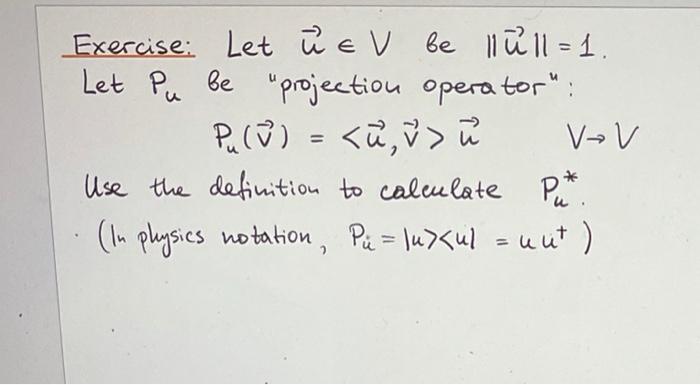 Exercise: Let u⃗ ∈ V be ||u⃗|| = 1.
Let Pᵤ be "projection operator":
Pᵤ(v⃗) = <u⃗, v⃗> u⃗ V→V
Use the definition to calculate Pᵤ*.
(In physics notation, Pᵤ = |u><u| = u u†)